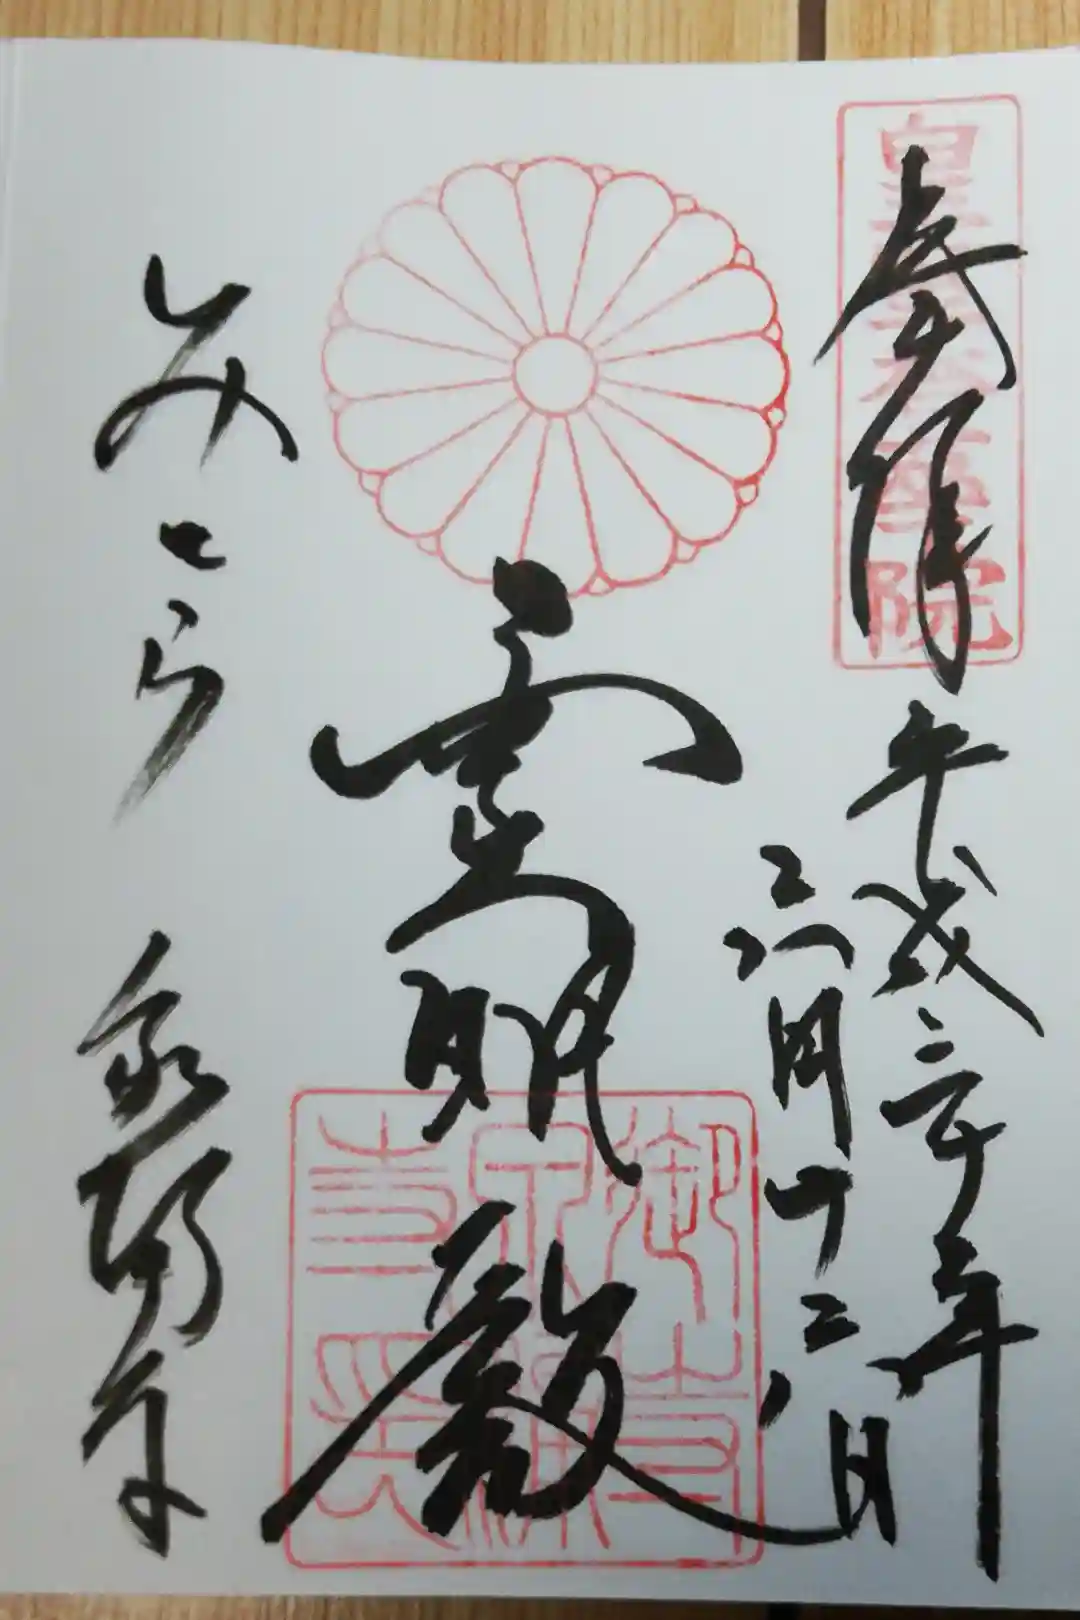 皇室香華院
奉拝
平成三十年
霊明殿
御寺泉涌寺印
みてら 泉涌寺